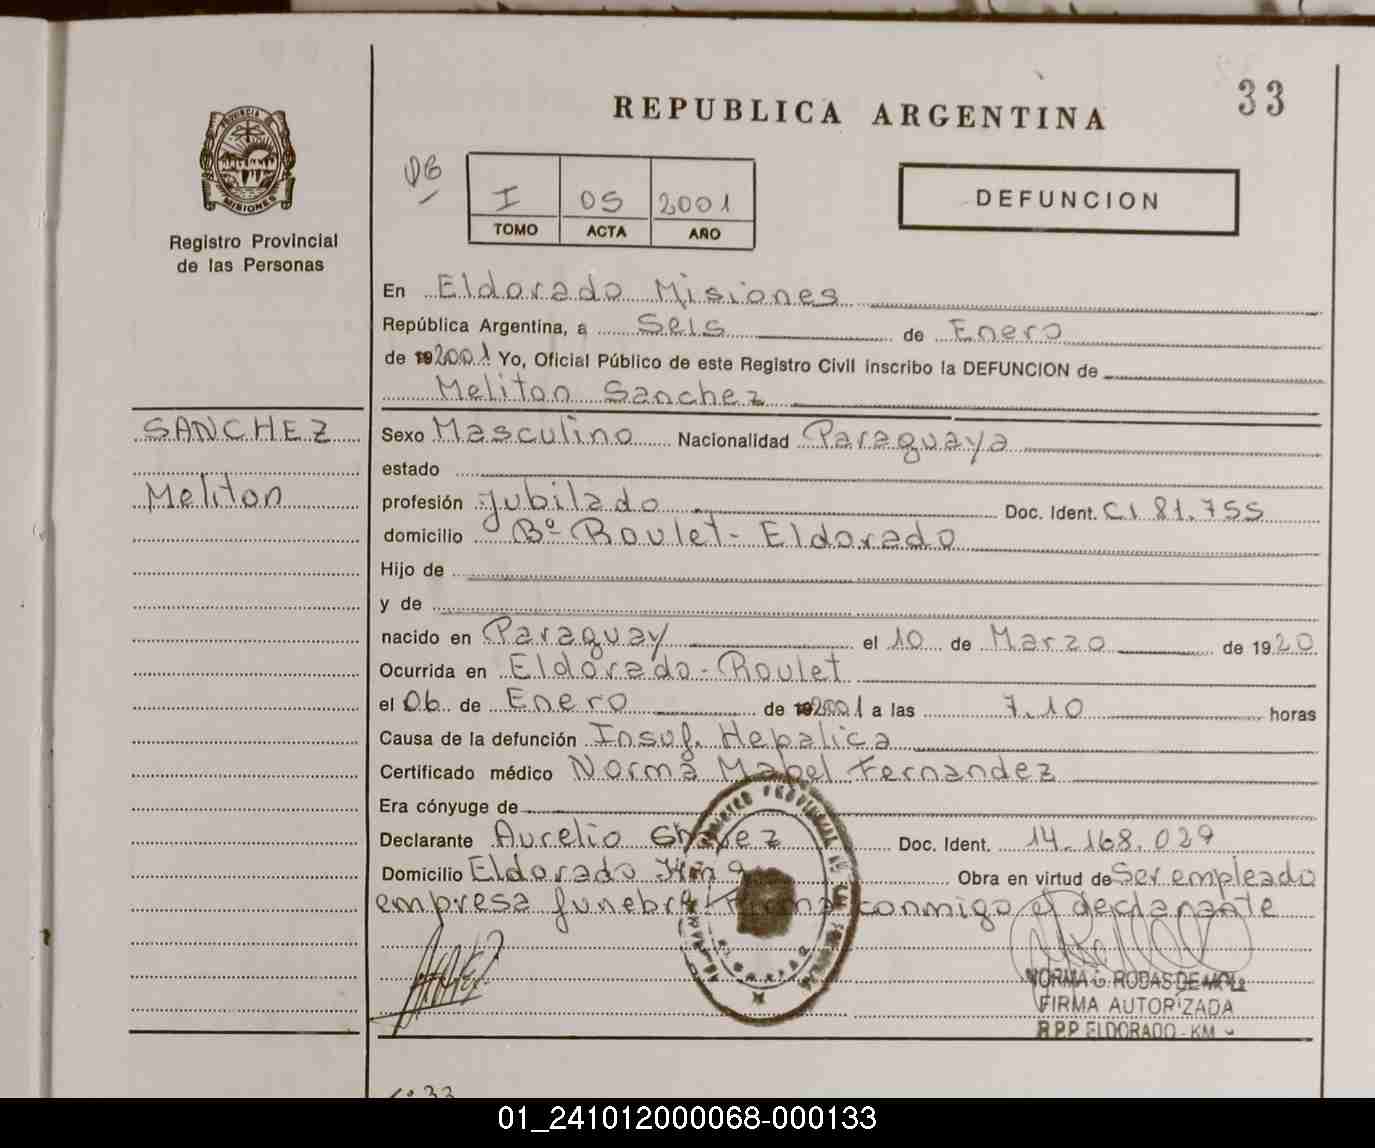 33
REPUBLICA ARGENTINA
PROVINCIA DE
MISIONES
Registro Provincial
de las Personas
I 05 2001
TOMO ACTA AÑO
DEFUNCION
En Eldorado Misiones
República Argentina, a Seis de Enero
de 192001 Yo, Oficial Público de este Registro Civil inscribo la DEFUNCION de
Meliton Sanchez
SANCHEZ
Meliton
Sexo Masculino Nacionalidad Paraguaya
estado
profesión Jubilado Doc. Ident. CI 81.755
domicilio Bº Roulet - Eldorado
Hijo de
y de
nacido en Paraguay el 10 de Marzo de 1920
Ocurrida en Eldorado - Roulet
el 06 de Enero de 192001 a las 7.10 horas
Causa de la defunción Insuf. Hepalica
Certificado médico Norma Mabel Fernandez
Era cónyuge de
Declarante Aurelio Chavez Doc. Ident. 14.168.029
Domicilio Eldorado Km 9 Obra en virtud de Ser empleado
empresa funebre. Firma conmigo el declarante
NORMA G. RODAS DE MOLL
FIRMA AUTORIZADA
R.P.P. ELDORADO - KM
01_241012000068-000133